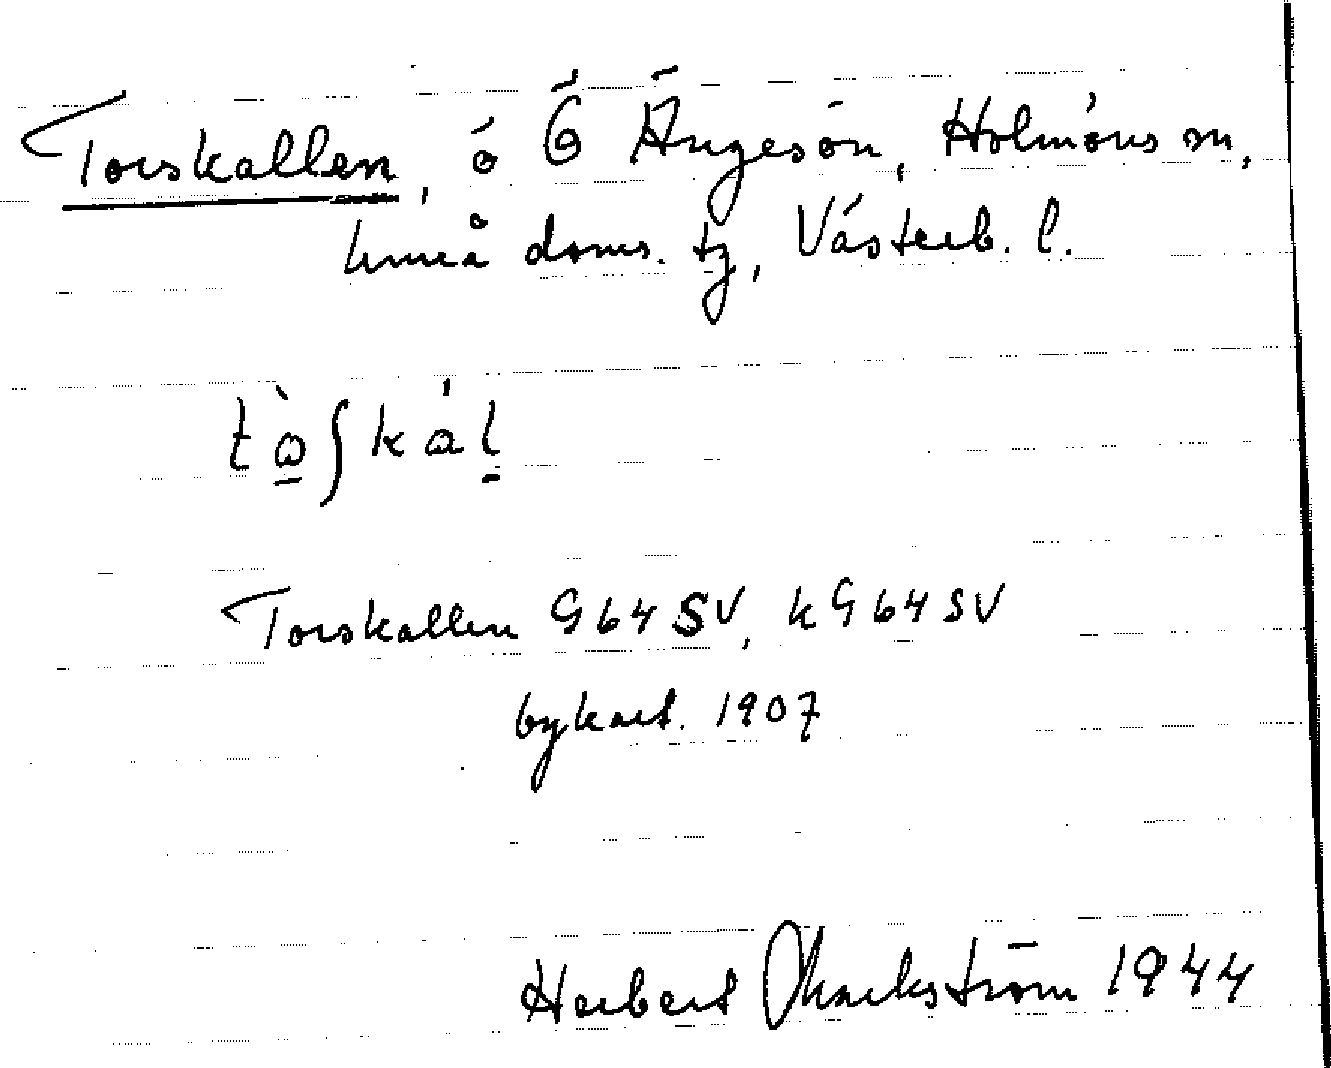 Torskallen, ö Ö Ängesön, Holmöns sn,
Umeå doms. tg, Västerb. l.
tò̱ʃkál̠
Torskallen G64SV, kG64SV
bykart. 1907
Herbert Markström 1944